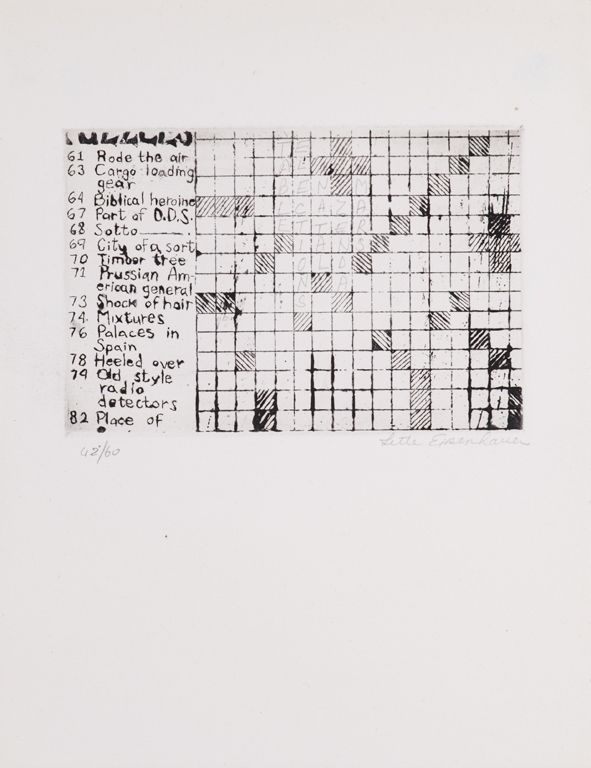 61 Rode the air
63 Cargo-loading
gear
64 Biblical heroine
67 Part of D.D.S.
68 Sotto
69 City of a sort
70 Timber tree
71 Prussian Am-
erican general
73 Shock of hair
74 Mixtures
76 Palaces in
Spain
78 Heeled over
79 Old style
radio
detectors
82 Place of
T E
B E N M
L C A Z A
E T T E R
I A N S
O L D
N A
S
42/60
Lette Eisenhauer